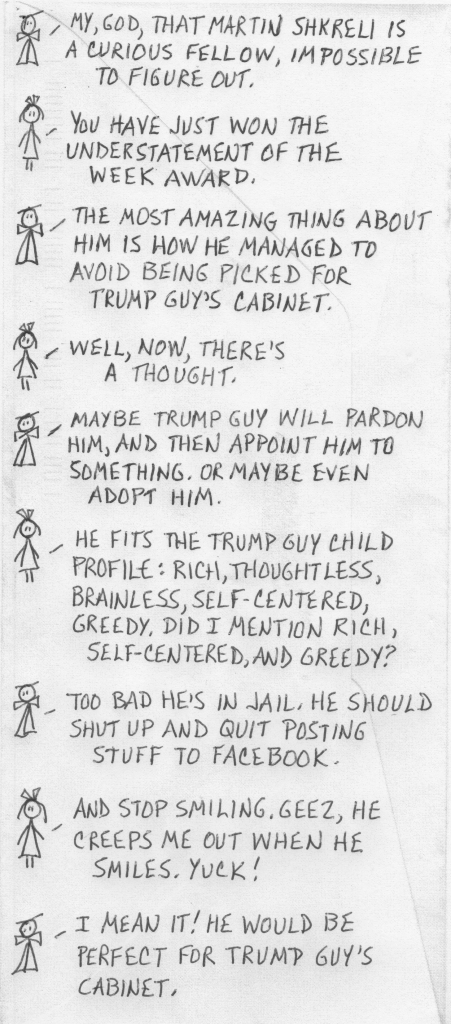 MY, GOD, THAT MARTIN SHKRELI IS
A CURIOUS FELLOW, IMPOSSIBLE
TO FIGURE OUT.
YOU HAVE JUST WON THE
UNDERSTATEMENT OF THE
WEEK AWARD.
THE MOST AMAZING THING ABOUT
HIM IS HOW HE MANAGED TO
AVOID BEING PICKED FOR
TRUMP GUY'S CABINET.
WELL, NOW, THERE'S
A THOUGHT.
MAYBE TRUMP GUY WILL PARDON
HIM, AND THEN APPOINT HIM TO
SOMETHING. OR MAYBE EVEN
ADOPT HIM.
HE FITS THE TRUMP GUY CHILD
PROFILE: RICH, THOUGHTLESS,
BRAINLESS, SELF-CENTERED,
GREEDY. DID I MENTION RICH,
SELF-CENTERED, AND GREEDY?
TOO BAD HE'S IN JAIL. HE SHOULD
SHUT UP AND QUIT POSTING
STUFF TO FACEBOOK.
AND STOP SMILING. GEEZ, HE
CREEPS ME OUT WHEN HE
SMILES. YUCK!
I MEAN IT! HE WOULD BE
PERFECT FOR TRUMP GUY'S
CABINET.